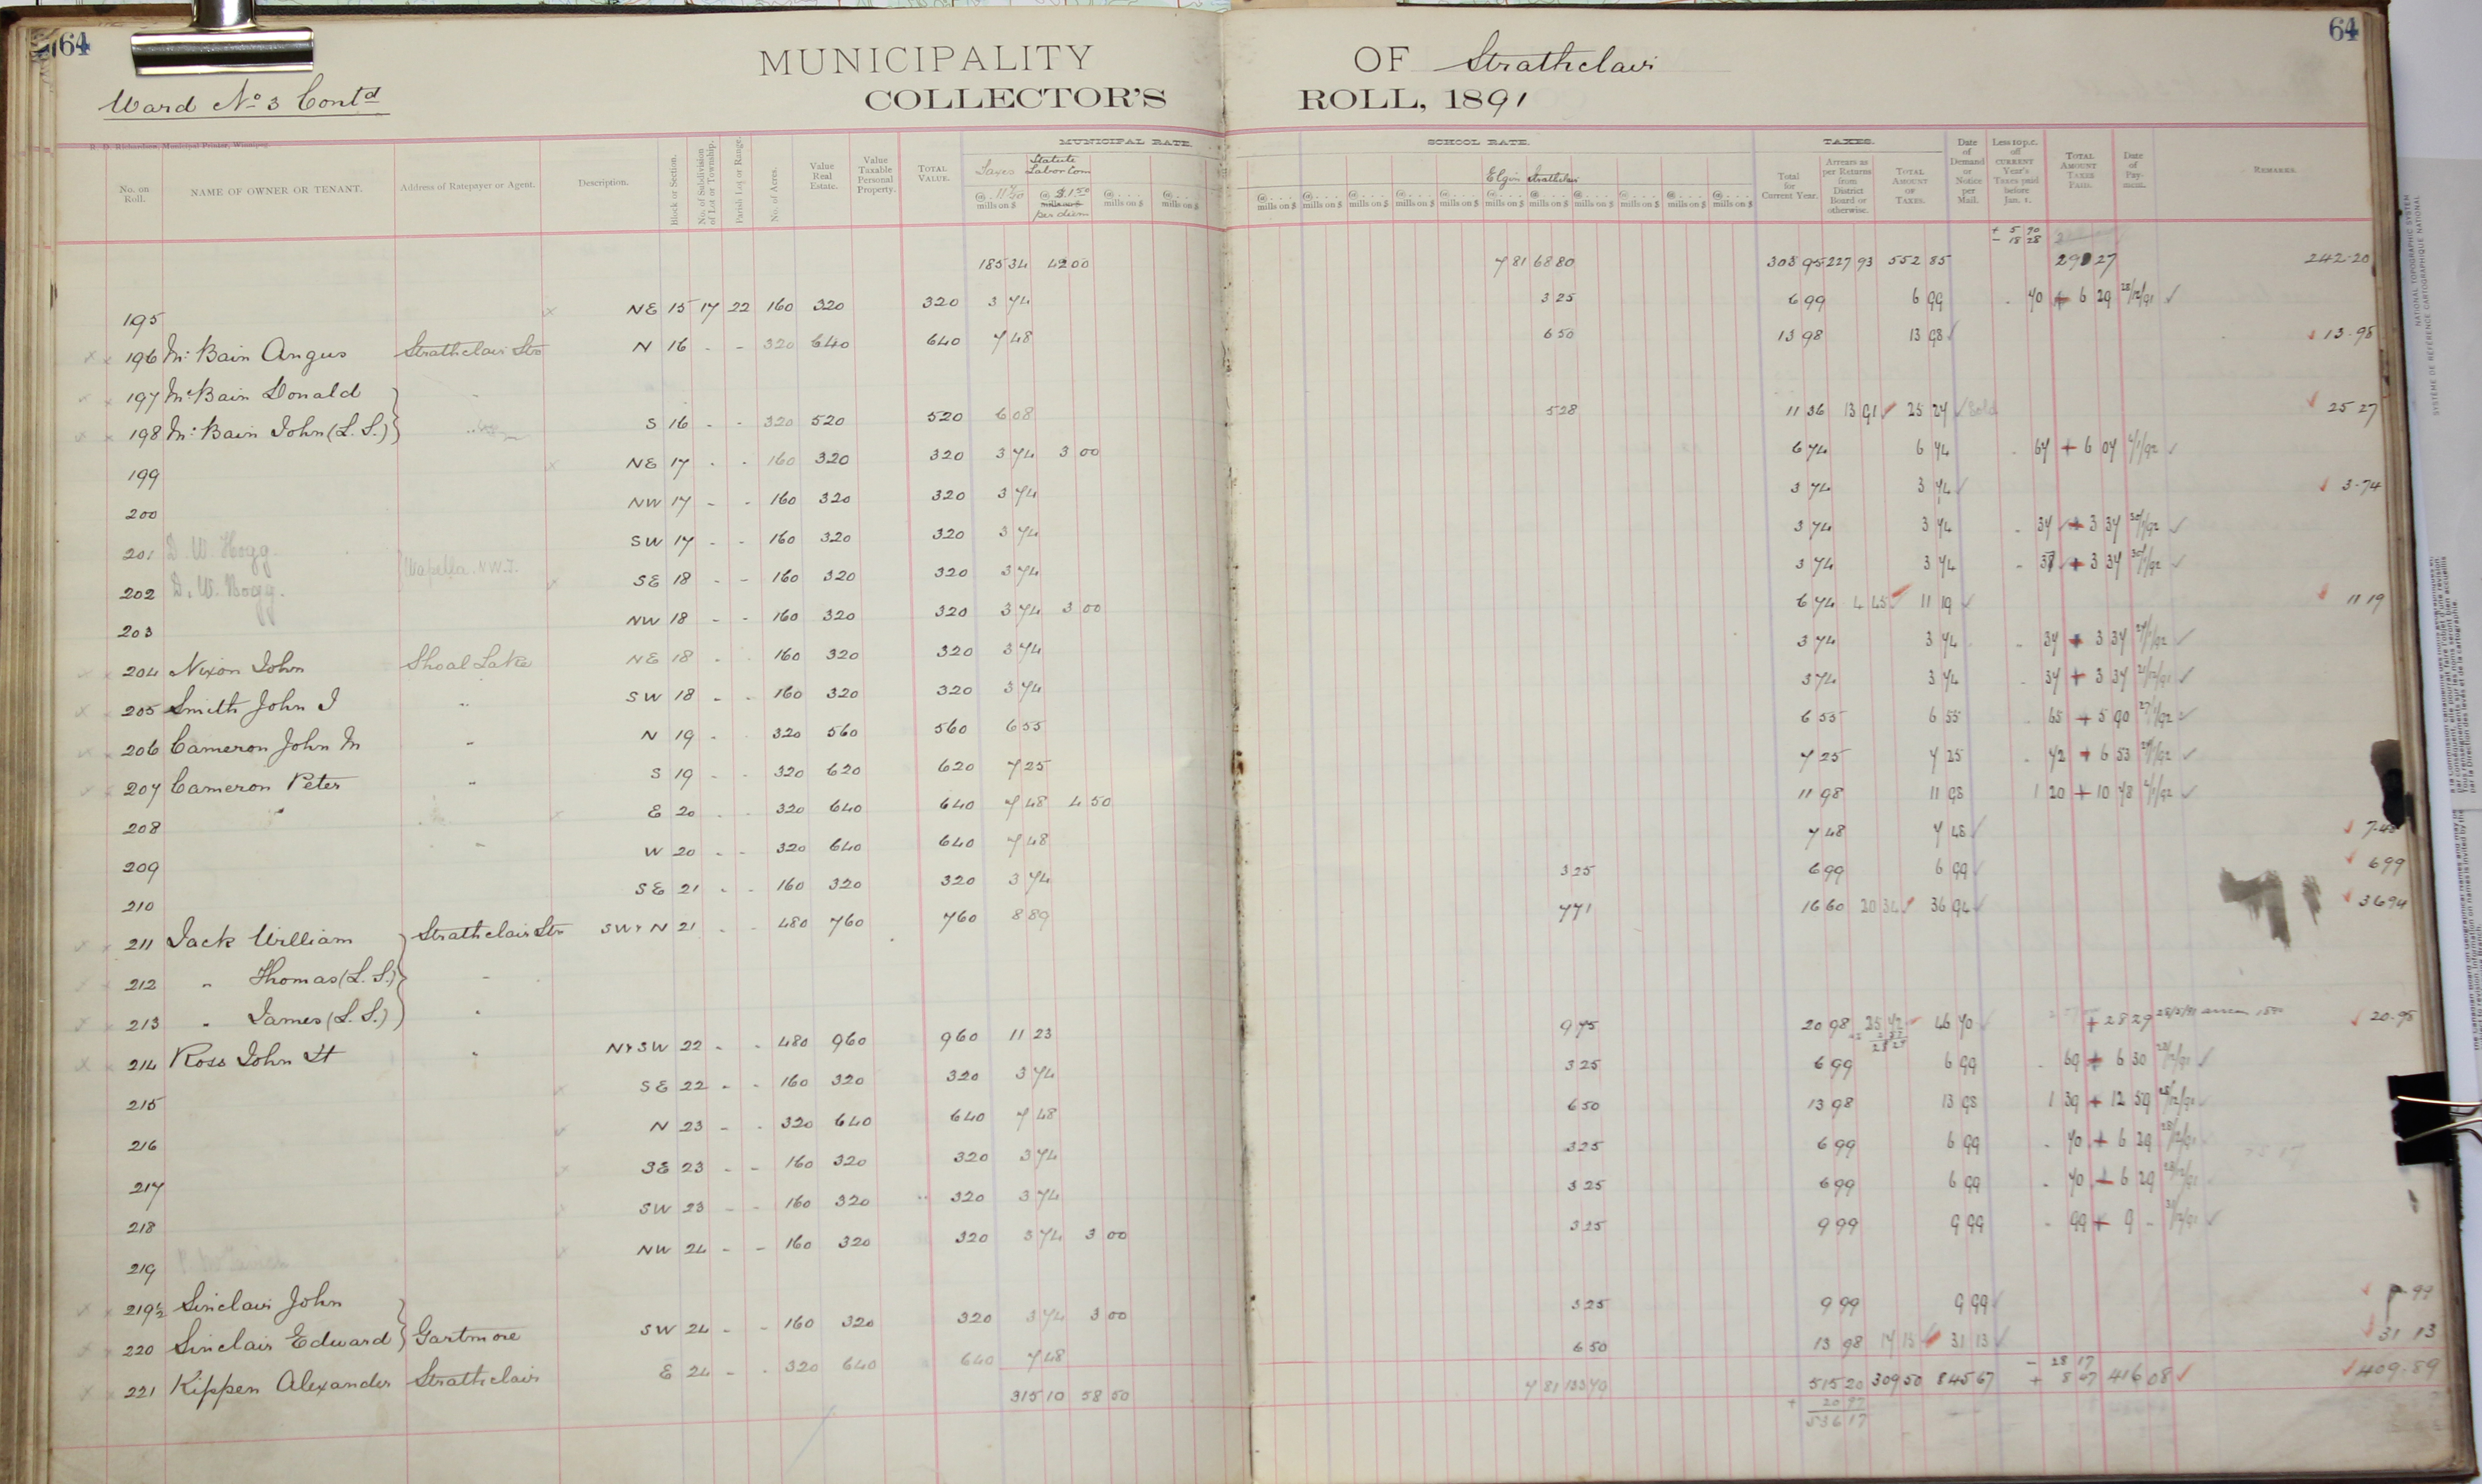 64 64
MUNICIPALITY OF Strathclair
Ward No 3 Contd COLLECTOR'S ROLL, 1891
R. D. Richardson, Municipal Printer, Winnipeg.
MUNICIPAL RATE. SCHOOL RATE. TAXES.
No. on Roll. NAME OF OWNER OR TENANT. Address of Ratepayer or Agent. Description. Block or Section. No. of Subdivision of Lot or Township. Parish Lot or Range. No. of Acres. Value Real Estate. Value Taxable Personal Property. TOTAL VALUE. Taxes @ mills on $ Statute Labor Com @ $1.50 mills on $ per diem @ . . . mills on $ @ . . . mills on $ Elgin Strathclair Total for Current Year. Arrears as per Returns from District Board or otherwise. TOTAL AMOUNT OF TAXES. Date of Demand or Notice per Mail. Less 10 p.c. off CURRENT YEAR'S Taxes paid before Jan. 1. TOTAL AMOUNT TAXES PAID. Date of Payment. REMARKS.
+ 5 90
- 18 28
185 34 42 00 7 81 68 80 303 95 227 93 552 85 242.20
195 NE 15 17 22 160 320 320 3 74 3 25 6 99 6 99 70 + 6 29 28/12/91
196 Mc Bain Angus Strathclair Stn N 16 - - 320 640 640 7 48 6 50 13 98 13 98 13.98
197 McBain Donald "
198 Mc Bain John (L. S.) S 16 - - 320 520 520 6 08 5 28 11 36 13 91 25 27 Sold 25 27
199 NE 17 - - 160 320 320 3 74 3 00 6 74 6 74 67 + 6 07 4/1/92
200 NW 17 - - 160 320 320 3 74 3 74 3 74 3.74
201 D. W. Hogg SW 17 - - 160 320 320 3 74 3 74 3 74 34 + 3 34 30/1/92
202 D. W. Hogg. Wapella. N.W.T. SE 18 - - 160 320 320 3 74 3 74 3 74 37 + 3 34 30/1/92
203 NW 18 - - 160 320 320 3 74 3 00 6 74 4 45 11 19 11 19
204 Nixon John Shoal Lake NE 18 - - 160 320 320 3 74 3 74 3 74 34 + 3 34
205 Smith John J " SW 18 - - 160 320 320 3 74 3 74 3 74 34 + 3 34
206 Cameron John M " N 19 - - 320 560 560 6 55 6 55 6 55 65 + 5 90
207 Cameron Peter " S 19 - - 320 620 620 7 25 7 25 7 25 72 + 6 53
208 " E 20 - - 320 640 640 7 48 4 50 11 98 11 98 1 20 + 10 78 4/1/92
209 W 20 - - 320 640 640 7 48 7 48 7 48 7.48
210 SE 21 - - 160 320 320 3 74 3 25 6 99 6 99 6 99
211 Jack William Strathclair Stn SW & N 21 - - 480 760 760 8 89 7 71 16 60 20 34 36 94 36 94
212 " Thomas (L. S.) "
213 " James (L. S.) "
214 Ross John St " N & SW 22 - - 480 960 960 11 23 9 75 20 98 25 72 46 70 + 28 29 20.98
215 SE 22 - - 160 320 320 3 74 3 25 6 99 6 99 69 + 6 30 28/12/91
216 N 23 - - 320 640 640 7 48 6 50 13 98 13 98 1 39 + 12 59 28/12/91
217 SE 23 - - 160 320 320 3 74 3 25 6 99 6 99 70 + 6 29 28/12/91
218 SW 23 - - 160 320 320 3 74 3 25 6 99 6 99 70 + 6 29 28/12/91
219 NW 24 - - 160 320 320 3 74 3 00 3 25 9 99 9 99 99 + 9 - 31/12/91
219½ Sinclair John
220 Sinclair Edward Gartmore SW 24 - - 160 320 320 3 74 3 00 3 25 9 99 9 99 9.99
221 Kippen Alexander Strathclair E 24 - - 320 640 640 7 48 6 50 13 98 17 15 31 13 31 13
315 10 58 50 7 81 133 70 515 20 309 50 845 67 - 28 17 + 8 67 416 08 409.89
+ 20 97
536 17